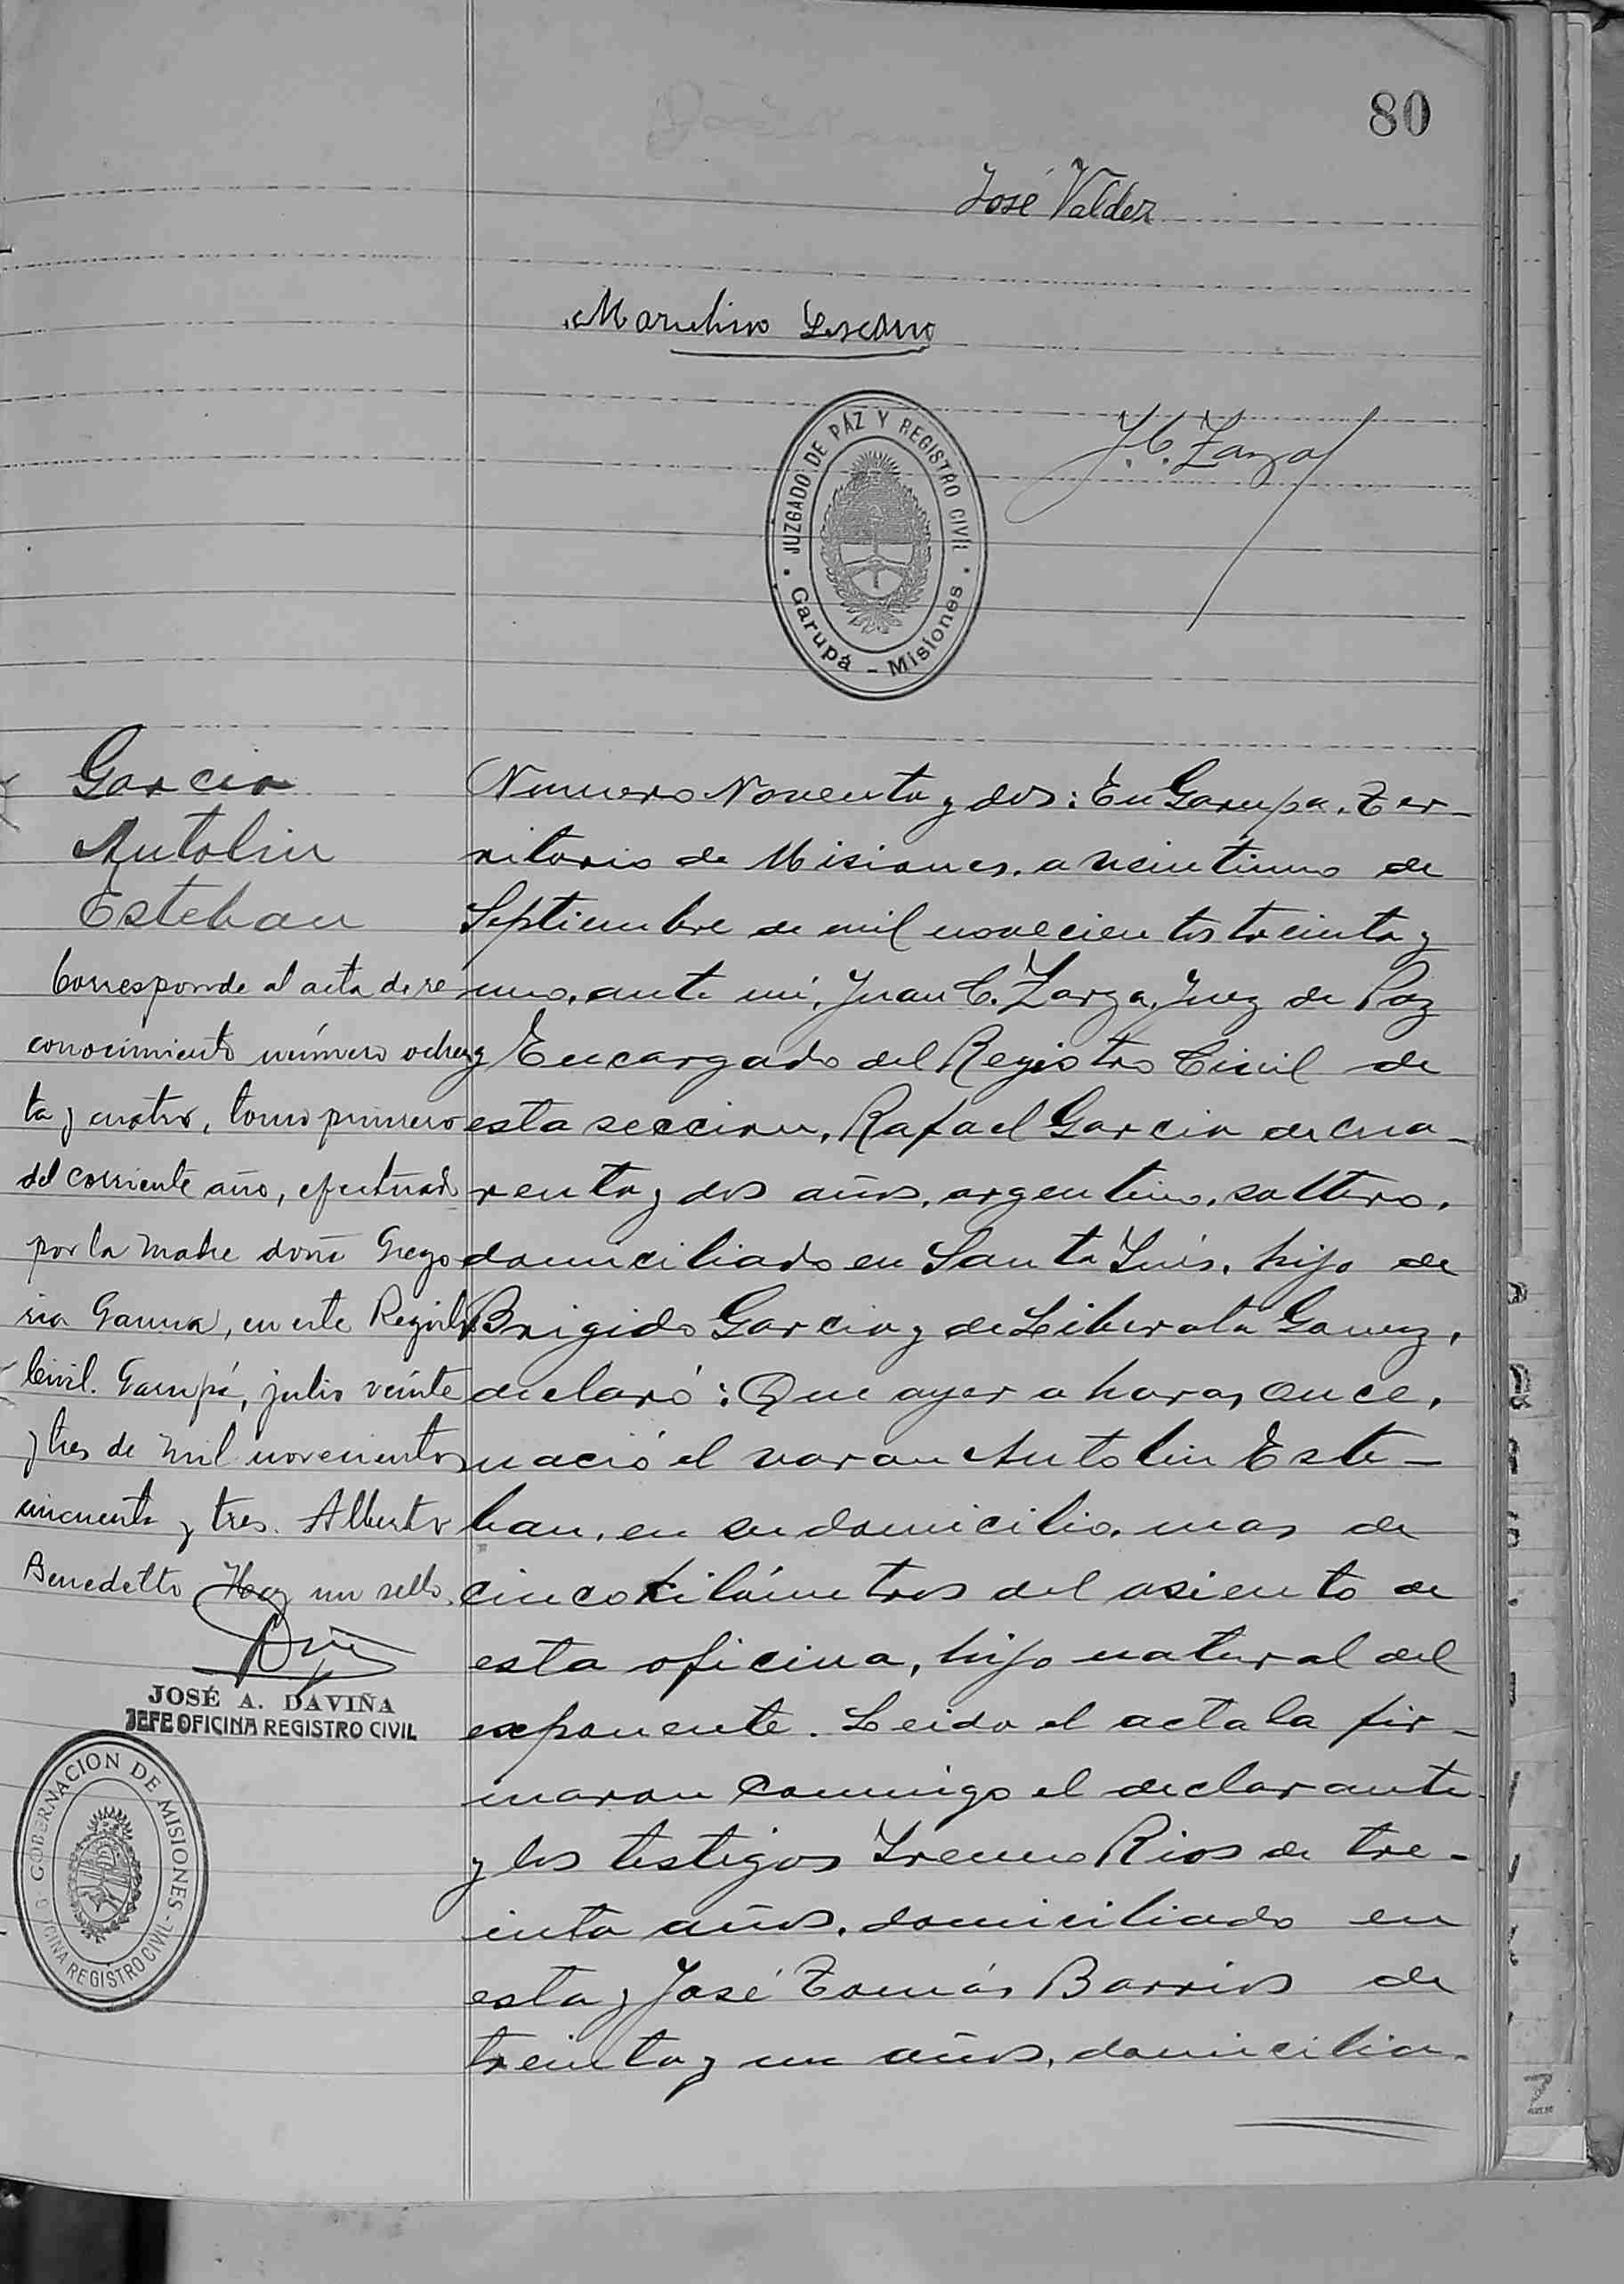 80
José Valdez
Marcelino Lescano
J. C. Zarza
JUZGADO DE PAZ Y REGISTRO CIVIL
Garupá - Misiones
Garcia
Antolin
Esteban
Corresponde al acta de re
conocimiento número ochen
ta y cuatro, tomo primero
del corriente año, efectuado
por la madre doña Grego
ria Gauna, en este Registro
Civil. Garupá, julio veinte
y tres de mil novecientos
cincuenta y tres. Alberto
Benedetto Hay un sello.
JOSÉ A. DAVIÑA
JEFE OFICINA REGISTRO CIVIL
GOBERNACION DE MISIONES
OFICINA REGISTRO CIVIL
Numero Noventa y dos: En Garupa, Ter-
ritorio de Misiones, a veintiuno de
Septiembre de mil novecientos treinta y
uno, ante mi, Juan C. Zarza, Juez de Paz
y Encargado del Registro Civil de
esta seccion, Rafael Garcia de cua-
renta y dos años, argentino, soltero,
domiciliado en Santa Inés, hijo de
Brigido Garcia y de Liberata Gomez,
declaró: Que ayer a horas once,
nació el varon Antolin Este-
ban, en su domicilio, mas de
cinco kilómetros del asiento de
esta oficina, hijo natural del
exponente. Leida el acta la fir-
maron conmigo el declarante
y los testigos Ireneo Rios de tre-
inta años, domiciliado en
esta y José Tomás Barrios de
treinta y un años, domicilia-